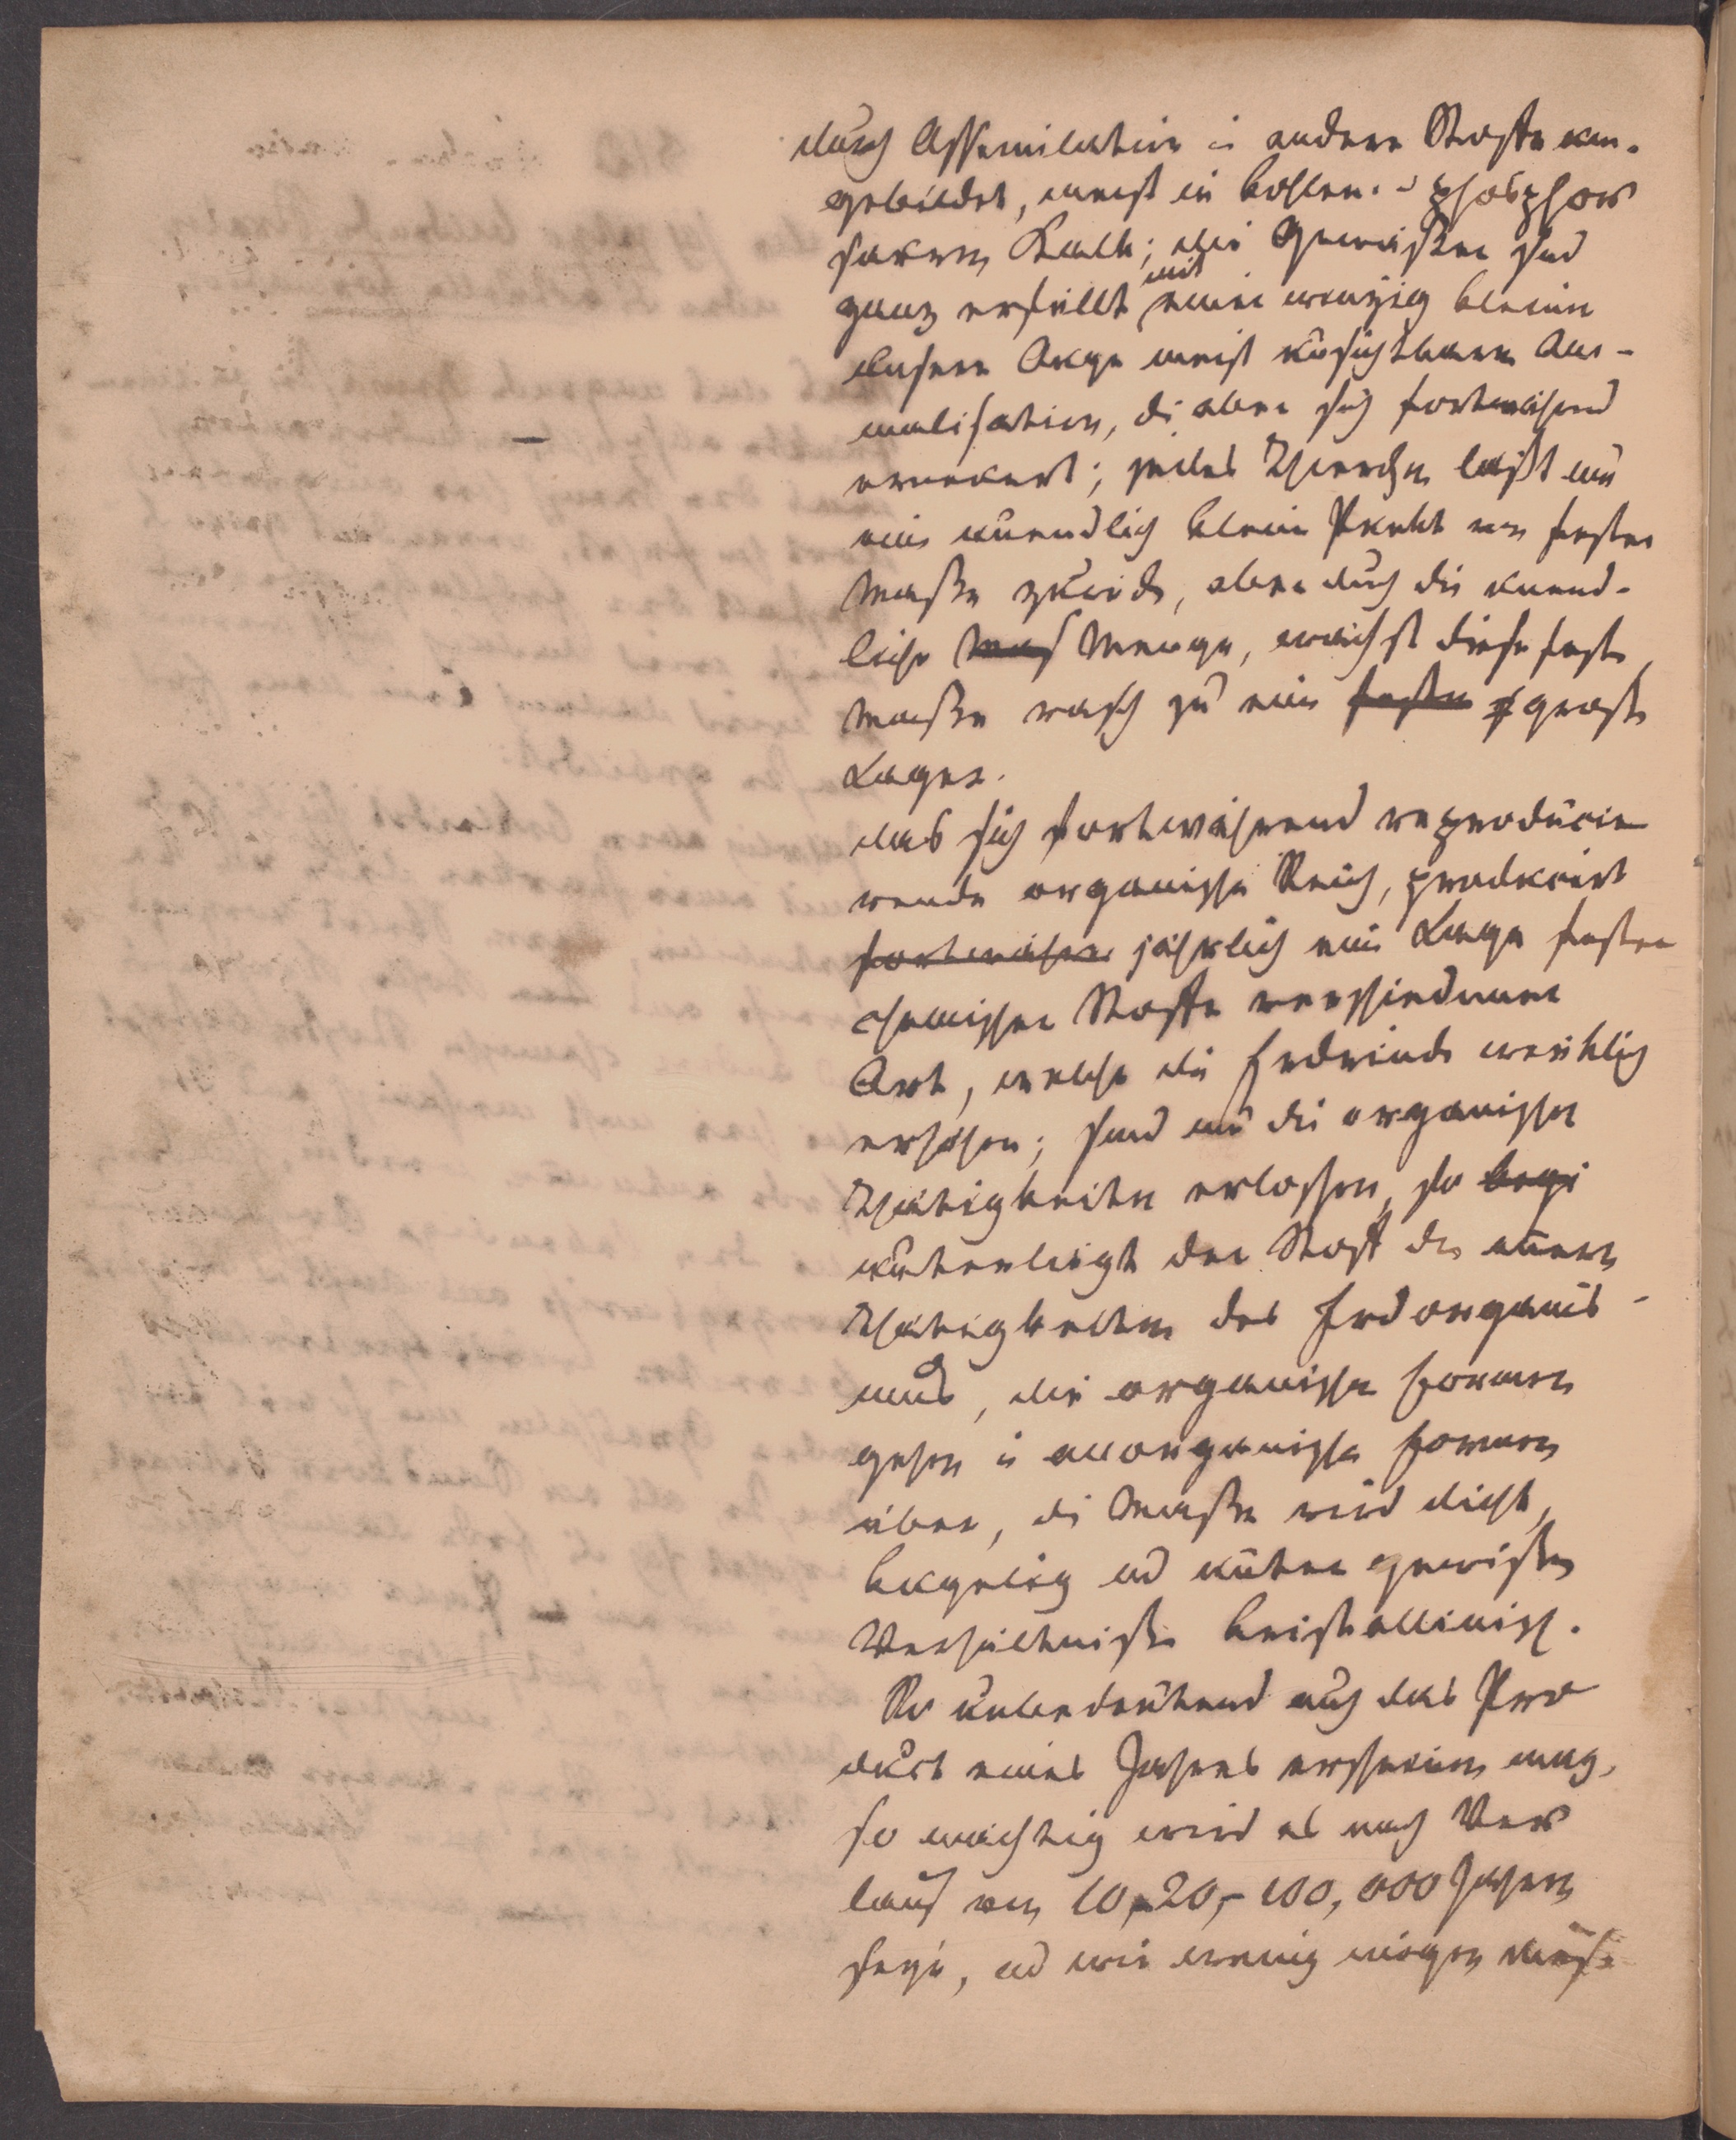 durch Assimilation in andere Stoffe um-
gebildet, meist in kohlen- u phosphor
sauren Kalk; die Gewäßer sind
ganz erfüllt mit einer winzig kleinen
unsern Auge meist unsichtbaren Ani-
malisation, die aber sich fortwährend
erneuert; jedes Thierchen läßt nun
ein unendlich klein Punkt von fester
Maße zurück, aber durch die unend-
liche Mas Menge, wächst diese feste
Maße rasch zu ein festen großen
Lager.
das sich fortwährend reproducie
rende organische Reich, producirt
fortwähre jährlich eine Lage fester
chemischer Stoffe verschiedener
Art, welche die Erdrinde wirklich
erhöhen; sind nun die organischen
Thätigkeiten erloschen, so
unterliegt der Stoff den innern
Thätigkeiten des Erdorganis-
mus, die organischen Formen
gehen in anorganische Formen
über, die Maße wird dicht,
kugelig und unter gewißen
Verhältnißen kristallinisch.
So unbedeutend auch das Pro
duct eines Jahres erscheinen mag,
so mächtig wird es nach Ver
lauf von 10,-20,-100,000 Jahren
seyn, und wie wenig mögen